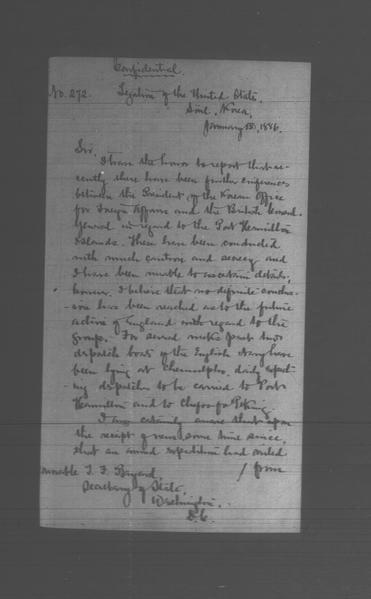 Confidential.
No. 272. Legation of the United States,
Söul, Korea,
January 1886.
Sir,
I have the honor to report that re-
cently there have been further conferences
between the President of the Korean Office
for Foreign Affairs and the British Consul-
General in regard to the Port Hamilton
Islands. These have been conducted
with much caution and secrecy and
I have been unable to ascertain details,
however, I believe that no definite conclu-
-sions have been reached as to the future
action of England with regard to the
group. For several weeks past two
dispatch boats of the English Navy have
been lying at Chemulpho, daily expect-
-ing dispatches to be carried to Port
Hamilton and to Chefoo for Peking.
I am certainly aware that upon
the receipt of news some time since,
that an armed expedition had sailed
/ from
Honorable T. F. Bayard,
Secretary of State,
Washington,
D.C.